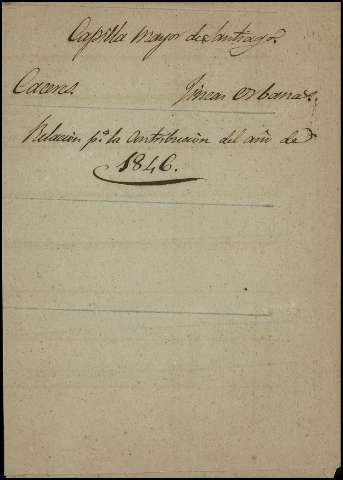 Capilla mayor de Santiago
Caceres Fincas Urbanas.
Relacion pª la Contribucion del año de
1846.